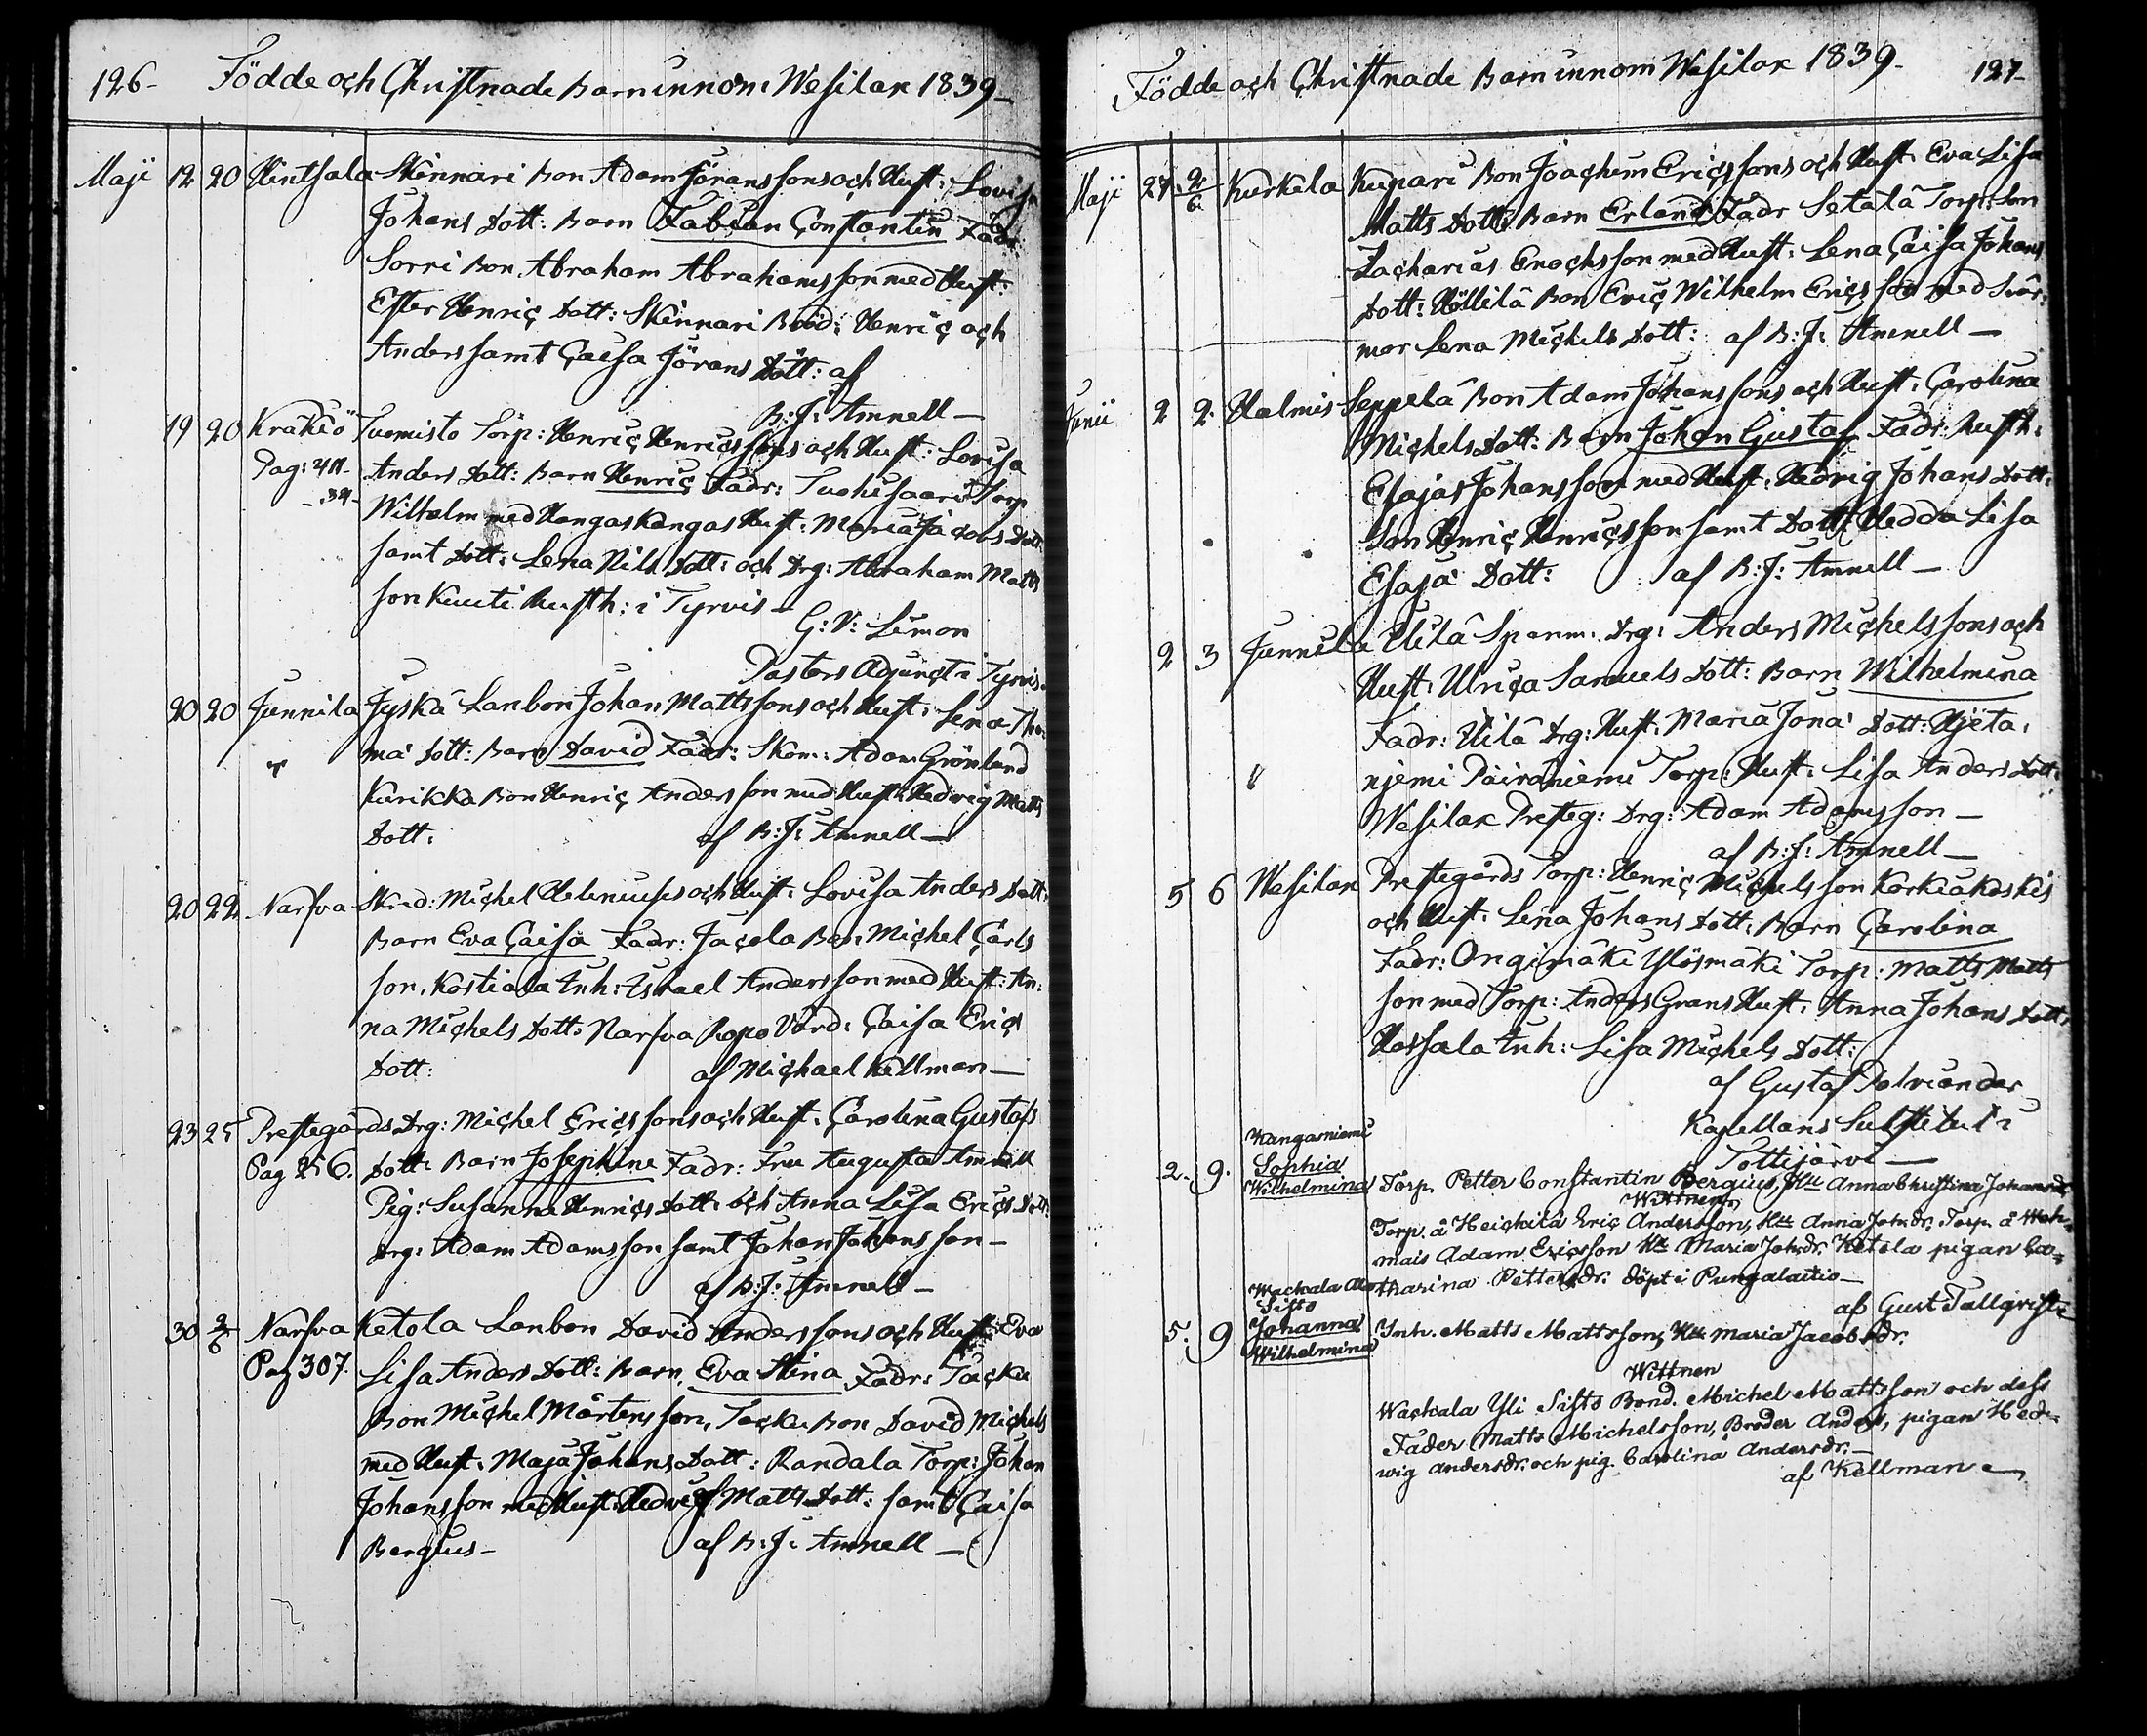 126- Födde och Christnade Barn innom Wesilax 1839-
Maji 12 20 Hintsala Skinnari Bon Adam Jöranssons och Hust: Lovisa
Johans Dott: Barn Fabian Constantin Fadr:
Sorri Bon Abraham Abrahamsson med Hust:
Ester Henriç Dott: Skinnari Bröd: Henriç och
Anders samt Caisa Jörans Dott: af
B: J: Amnell-
19 20 Krakiö Tuomisto Torp: Henriç Henricssons och Hust: Lovisa
Pag: 411- Anders Dott: Barn Henriç Fadr: Tuohisaari Torp
-39- Wilhelm med Kangaskangas Hust: Maria Jacobs Dott:
samt Dott: Lena Nils Dott: och Drg: Abraham Matts
son Kuuti Rusth: i Tyrvis-
G: V: Limon
Pastors Adjunct i Tyrvis.
20 20 Junnila Jyskä Lanbon Johan Mattssons och Hust: Lena Tho-
må Dott: Barn David Fadr: Skom: Adam Grönlund
Kurikka Bon Henriç Andersson med Hust: Hedvig Matts
Dott: af B: J: Amnell-
20 22 Narfva Skrd: Michel Heleniuses och Hust: Lovisa Anders Dott:
Barn Eva Caisa Fadr: Jaçola Bon Michel Carls
son, Kostiala Inh: Israel Andersson med Hust: An-
na Michels Dott: Narfva Ropo Värd: Caisa Eriç
Dott: af Michael Kellman-
23 25 Prestegårds Drg: Michel Ericssons och Hust: Carolina Gustafs
Pag 256. Dott: Barn Josephine Fadr: Fru Augusta Amnell
Pig: Susanna Henriçs Dott: och Anna Lisa Eriçs Dott:
Drg: Adam Adamsson samt Johan Johansson-
af B: J: Amnell-
30 2/6 Narfva Ketola Lanbon David Anderssons och Hust: Eva
Pag 307. Lisa Anders Dott: Barn Eva Stina Fadr: Taçku
Bon Michel Mårtensson, Taçku Bon David Michels
med Hust: Maja Johans Dott: Randala Torp: Johan
Johansson med Hust: Hedvig Matts Dott: samt Caisa
Bergius- af B: J: Amnell-
Födde och Christnade Barn innom Wesilax 1839- 127-
Maji 27 2/6 Kurkela Kupari Bon Joachim Ericssons och Hust: Eva Lisa
Matts Dott: Barn Erland Fadr Setälä Torp: Son
Zacharias Enochsson med Hust: Lena Caisa Johans
Dott: Höllilä Bon Eriç Wilhelm Ericsson med Svär-
mor Lena Michels Dott: af B: J: Amnell-
Junii 2 2 Halmis Seppelä Bon Adam Johanssons och Hust: Carolina
Michels Dott: Barn Johan Gustaf Fadr: Rusth:
Esajas Johansson med Hust: Hedvig Johans Dott:
Son Henriç Henricsson samt Dott: Hedda Lisa
Esajä Dott: af B: J: Amnell-
2 3 Junnila Uitä Spanm: Drg: Anders Michelssons och
Hust: Ulrica Samuels Dott: Barn Wilhelmina
Fadr: Drg: Hust: Maria Jonä Dott: Hjeta-
njemi Päiväniemi Torp: Hust: Lisa Anders Dott:
Wesilax Presteg: Drg: Adam Adamsson-
af B: J: Amnell-
5 6 Wesilax Prestegårds Torp: Henriç Michelsson Korkiakoskis
och Hust: Lena Johans Dott: Barn Carolina
Fadr: Ongimäki Ylösmäki Torp: Matts Matts
son med Torp: Anders Grans Hust: Anna Johans Dott:
Hossala Inh: Lisa Michels Dott:
af Gustaf Polviander
Kapellans Substitut i
Tottijärvi-
Kangasniemi
2. 9. Sophia
Wilhelmina Torp. Petter Constantin Bergius, Hu Anna Christina Johansdr.
Wittnen
Torp. å Heickilä Eriç Andersson, Hu Anna Joh. dr. Torp. å Woh-
mais Adam Ericsson Hu Maria Joh. dr. Ketola pigan Ca-
tharina Pettersdr. döpt i Pungalaitio-
af Gust Tallqvist
Wackala Ala
Sifto
5. 9 Johanna Inh. Matts Mattsson, Hu Maria Jacobsdr.
Wilhelmina
Wittnen
Wackala Yli Sifto Bond. Michel Mattsson och dess
Fader Matts Michelsson, Broder Anders, pigan Hed-
wig Andersdr. och pig. Carolina Andersdr.-
af Kellman